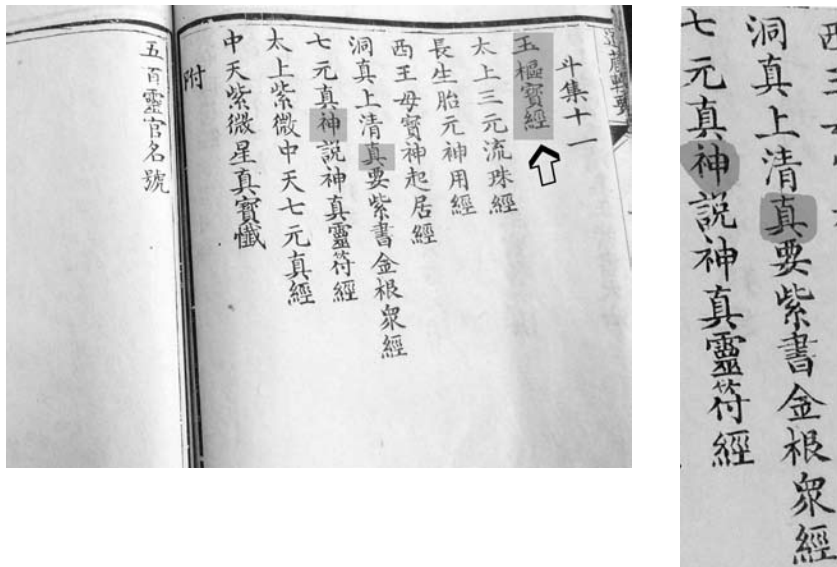 道藏輯要
斗集十一
玉樞寶經
太上三元流珠經
長生胎元神用經
西王母寶神起居經
洞真上清真要紫書金根衆經
七元真神説神真靈符經
太上紫微中天七元真經
中天紫微星真寶懺
附
五百靈官名號
洞真上清真要紫書金根衆經
七元真神説神真靈符經